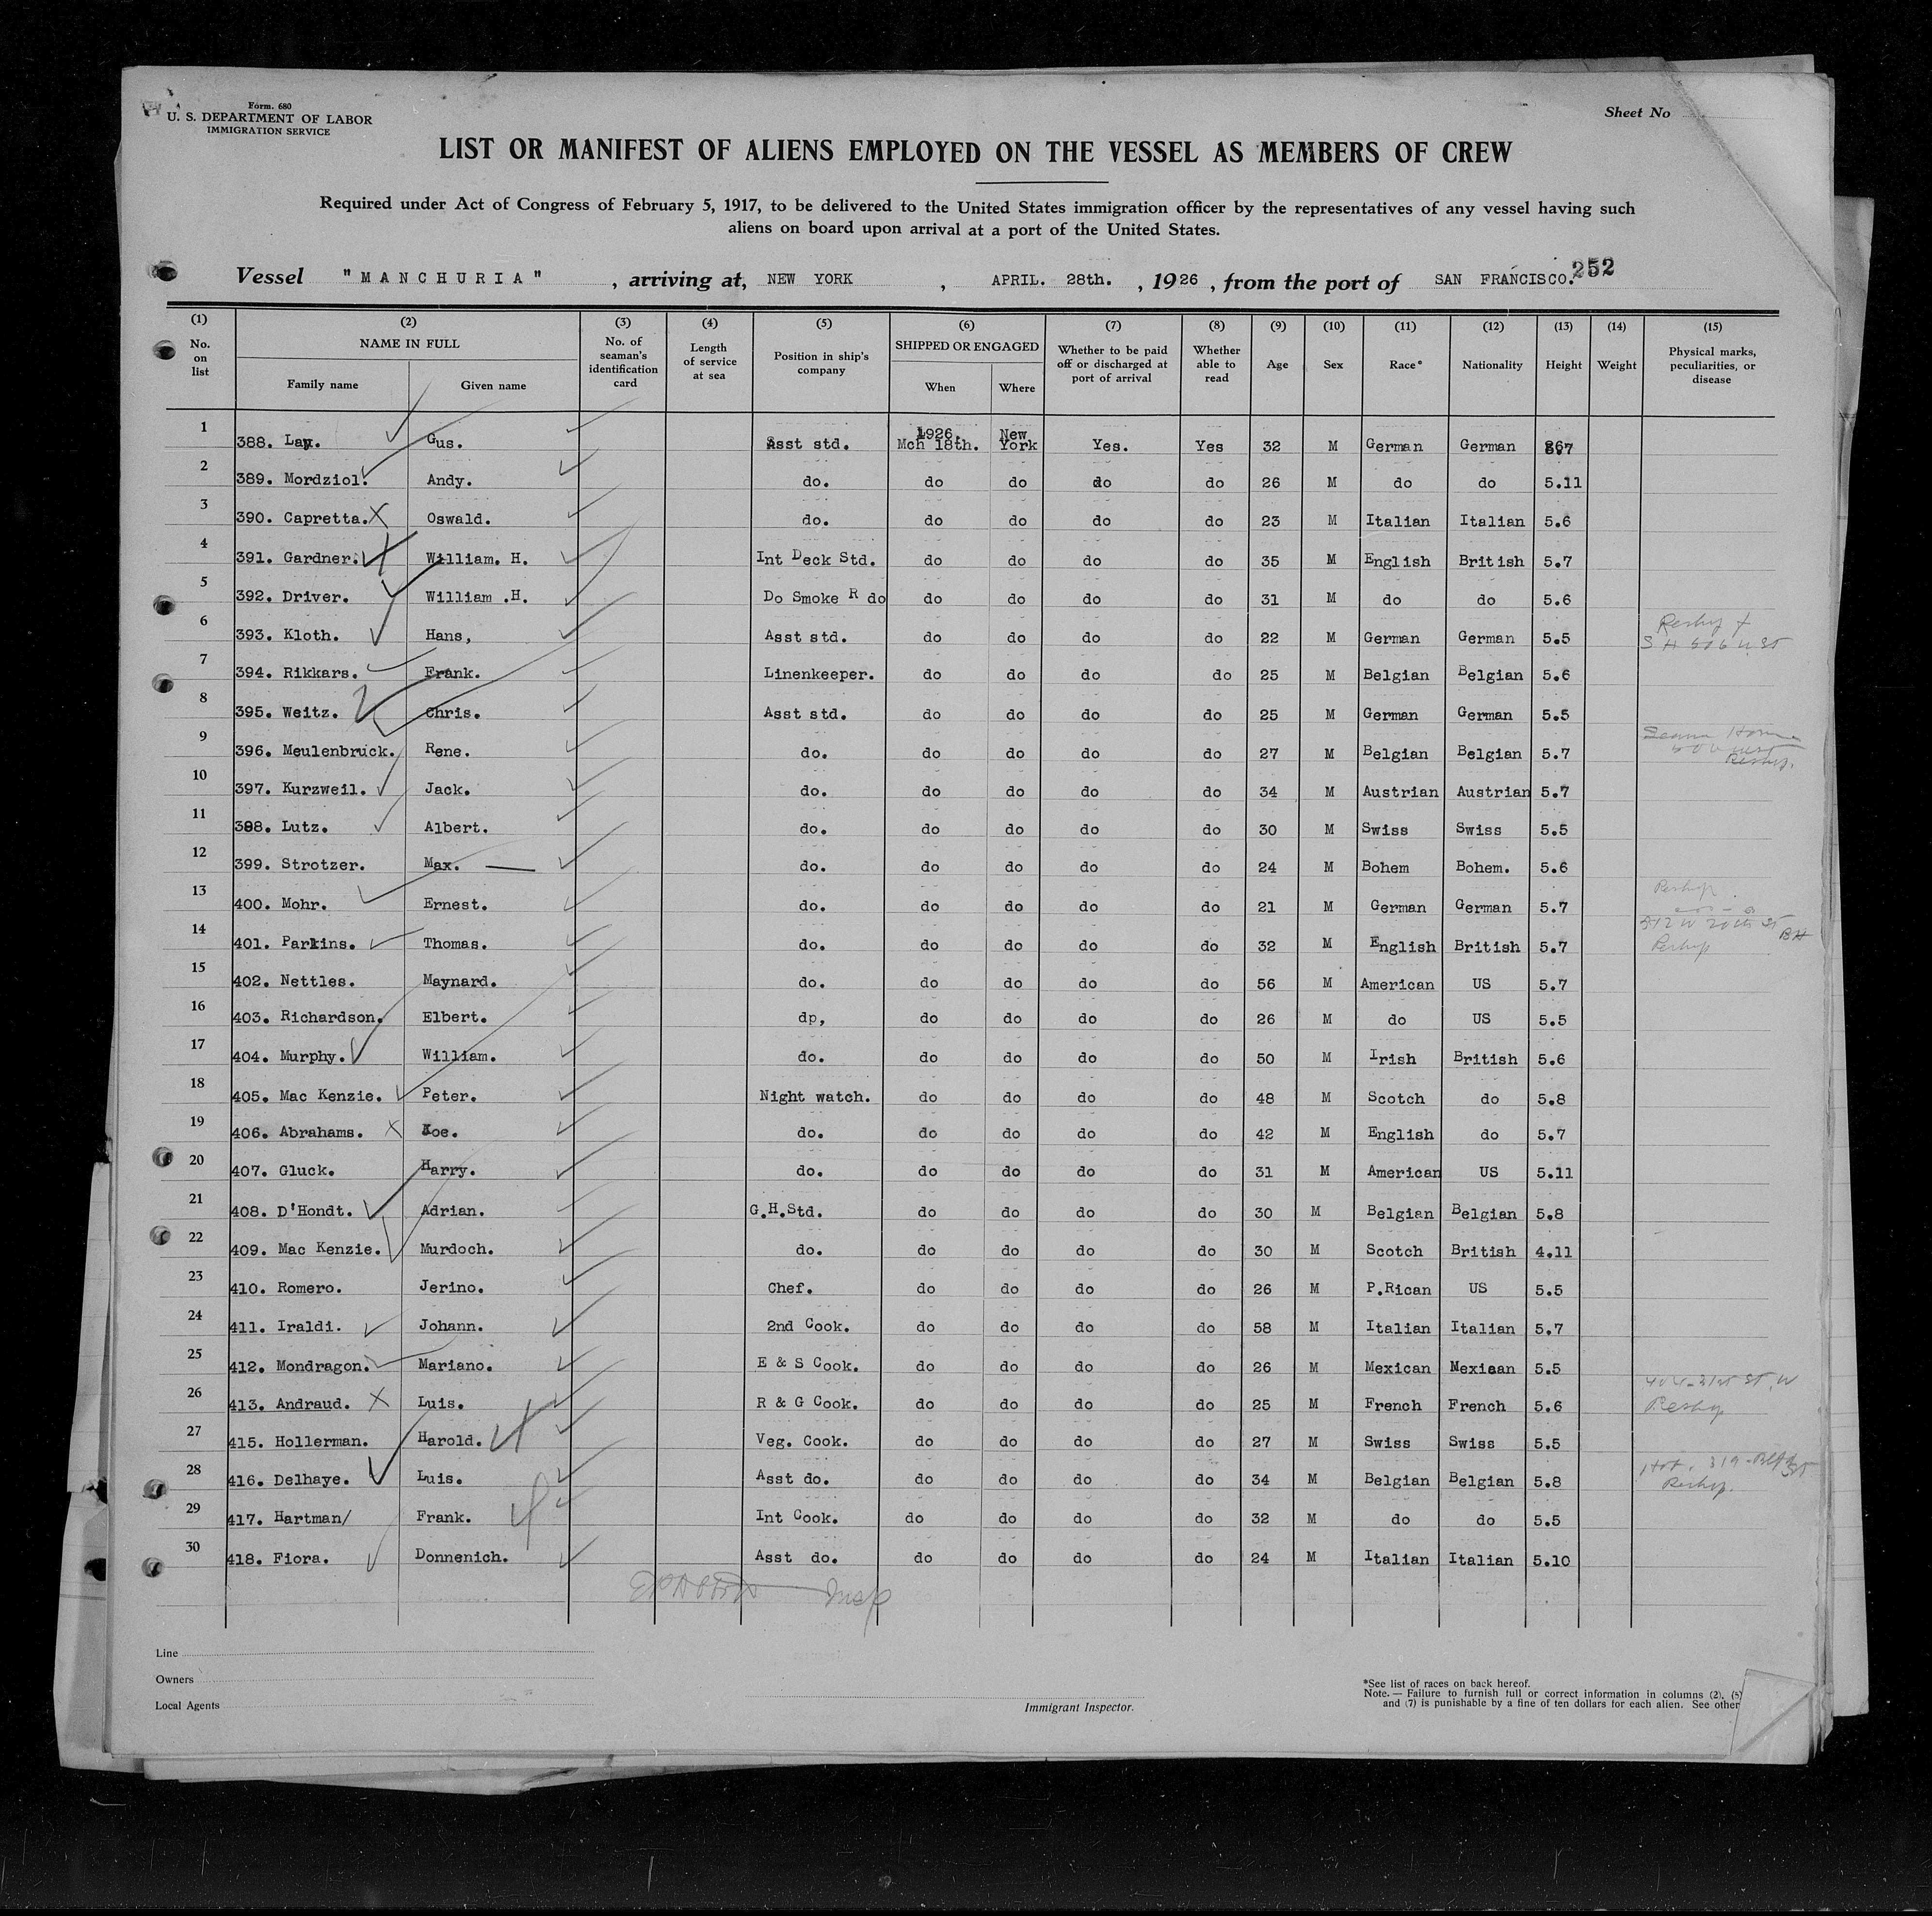 Form. 680
U. S. DEPARTMENT OF LABOR
IMMIGRATION SERVICE
Sheet No
LIST OR MANIFEST OF ALIENS EMPLOYED ON THE VESSEL AS MEMBERS OF CREW
Required under Act of Congress of February 5, 1917, to be delivered to the United States immigration officer by the representatives of any vessel having such
aliens on board upon arrival at a port of the United States.
Vessel "MANCHURIA", arriving at, NEW YORK, APRIL. 28th., 1926, from the port of SAN FRANCISCO. 252
(1) No. on list (2) NAME IN FULL Family name Given name (3) No. of seaman's identification card (4) Length of service at sea (5) Position in ship's company (6) SHIPPED OR ENGAGED When Where (7) Whether to be paid off or discharged at port of arrival (8) Whether able to read (9) Age (10) Sex (11) Race* (12) Nationality (13) Height (14) Weight (15) Physical marks, peculiarities, or disease
1 388. Gus. Asst std. 1926. Mch 18th. New York Yes. Yes 32 M German German
2 389. Mordziol. Andy. do. do do do do 26 M do do 5.11
3 390. Capretta. Oswald. do. do do do do 23 M Italian Italian 5.6
4 391. Gardner. William. H. Int Deck Std. do do do do 35 M English British 5.7
5 392. Driver. William .H. Do Smoke R do do do do do 31 M do do 5.6
6 393. Kloth. Hans, Asst std. do do do do 22 M German German 5.5
7 394. Rikkars. Frank. Linenkeeper. do do do do 25 M Belgian Belgian 5.6
8 395. Weitz. Chris. Asst std. do do do do 25 M German German 5.5
9 396. Meulenbruck. Rene. do. do do do do 27 M Belgian Belgian 5.7
10 397. Kurzweil. Jack. do. do do do do 34 M Austrian Austrian 5.7
11 398. Lutz. Albert. do. do do do do 30 M Swiss Swiss 5.5
12 399. Strotzer. Max. do. do do do do 24 M Bohem Bohem. 5.6
13 400. Mohr. Ernest. do. do do do do 21 M German German 5.7
14 401. Parkins. Thomas. do. do do do do 32 M English British 5.7
15 402. Nettles. Maynard. do. do do do do 56 M American US 5.7
16 403. Richardson. Elbert. dp, do do do do 26 M do US 5.5
17 404. Murphy. William. do. do do do do 50 M Irish British 5.6
18 405. Mac Kenzie. Peter. Night watch. do do do do 48 M Scotch do 5.8
19 406. Abrahams. Joe. do. do do do do 42 M English do 5.7
20 407. Gluck. Harry. do. do do do do 31 M American US 5.11
21 408. D'Hondt. Adrian. G.H.Std. do do do do 30 M Belgian Belgian 5.8
22 409. Mac Kenzie. Murdoch. do. do do do do 30 M Scotch British 4.11
23 410. Romero. Jerino. Chef. do do do do 26 M P.Rican US 5.5
24 411. Iraldi. Johann. 2nd Cook. do do do do 58 M Italian Italian 5.7
25 412. Mondragon. Mariano. E & S Cook. do do do do 26 M Mexican Mexican 5.5
26 413. Andraud. Luis. R & G Cook. do do do do 25 M French French 5.6
27 415. Hollerman. Harold. Veg. Cook. do do do do 27 M Swiss Swiss 5.5
28 416. Delhaye. Luis. Asst do. do do do do 34 M Belgian Belgian 5.8
29 417. Hartman/ Frank. Int Cook. do do do do 32 M do do 5.5
30 418. Fiora. Donnenich. Asst do. do do do do 24 M Italian Italian 5.10
Insp
Line
Owners
Local Agents
Immigrant Inspector.
*See list of races on back hereof.
Note.— Failure to furnish full or correct information in columns (2), (5)
and (7) is punishable by a fine of ten dollars for each alien. See other